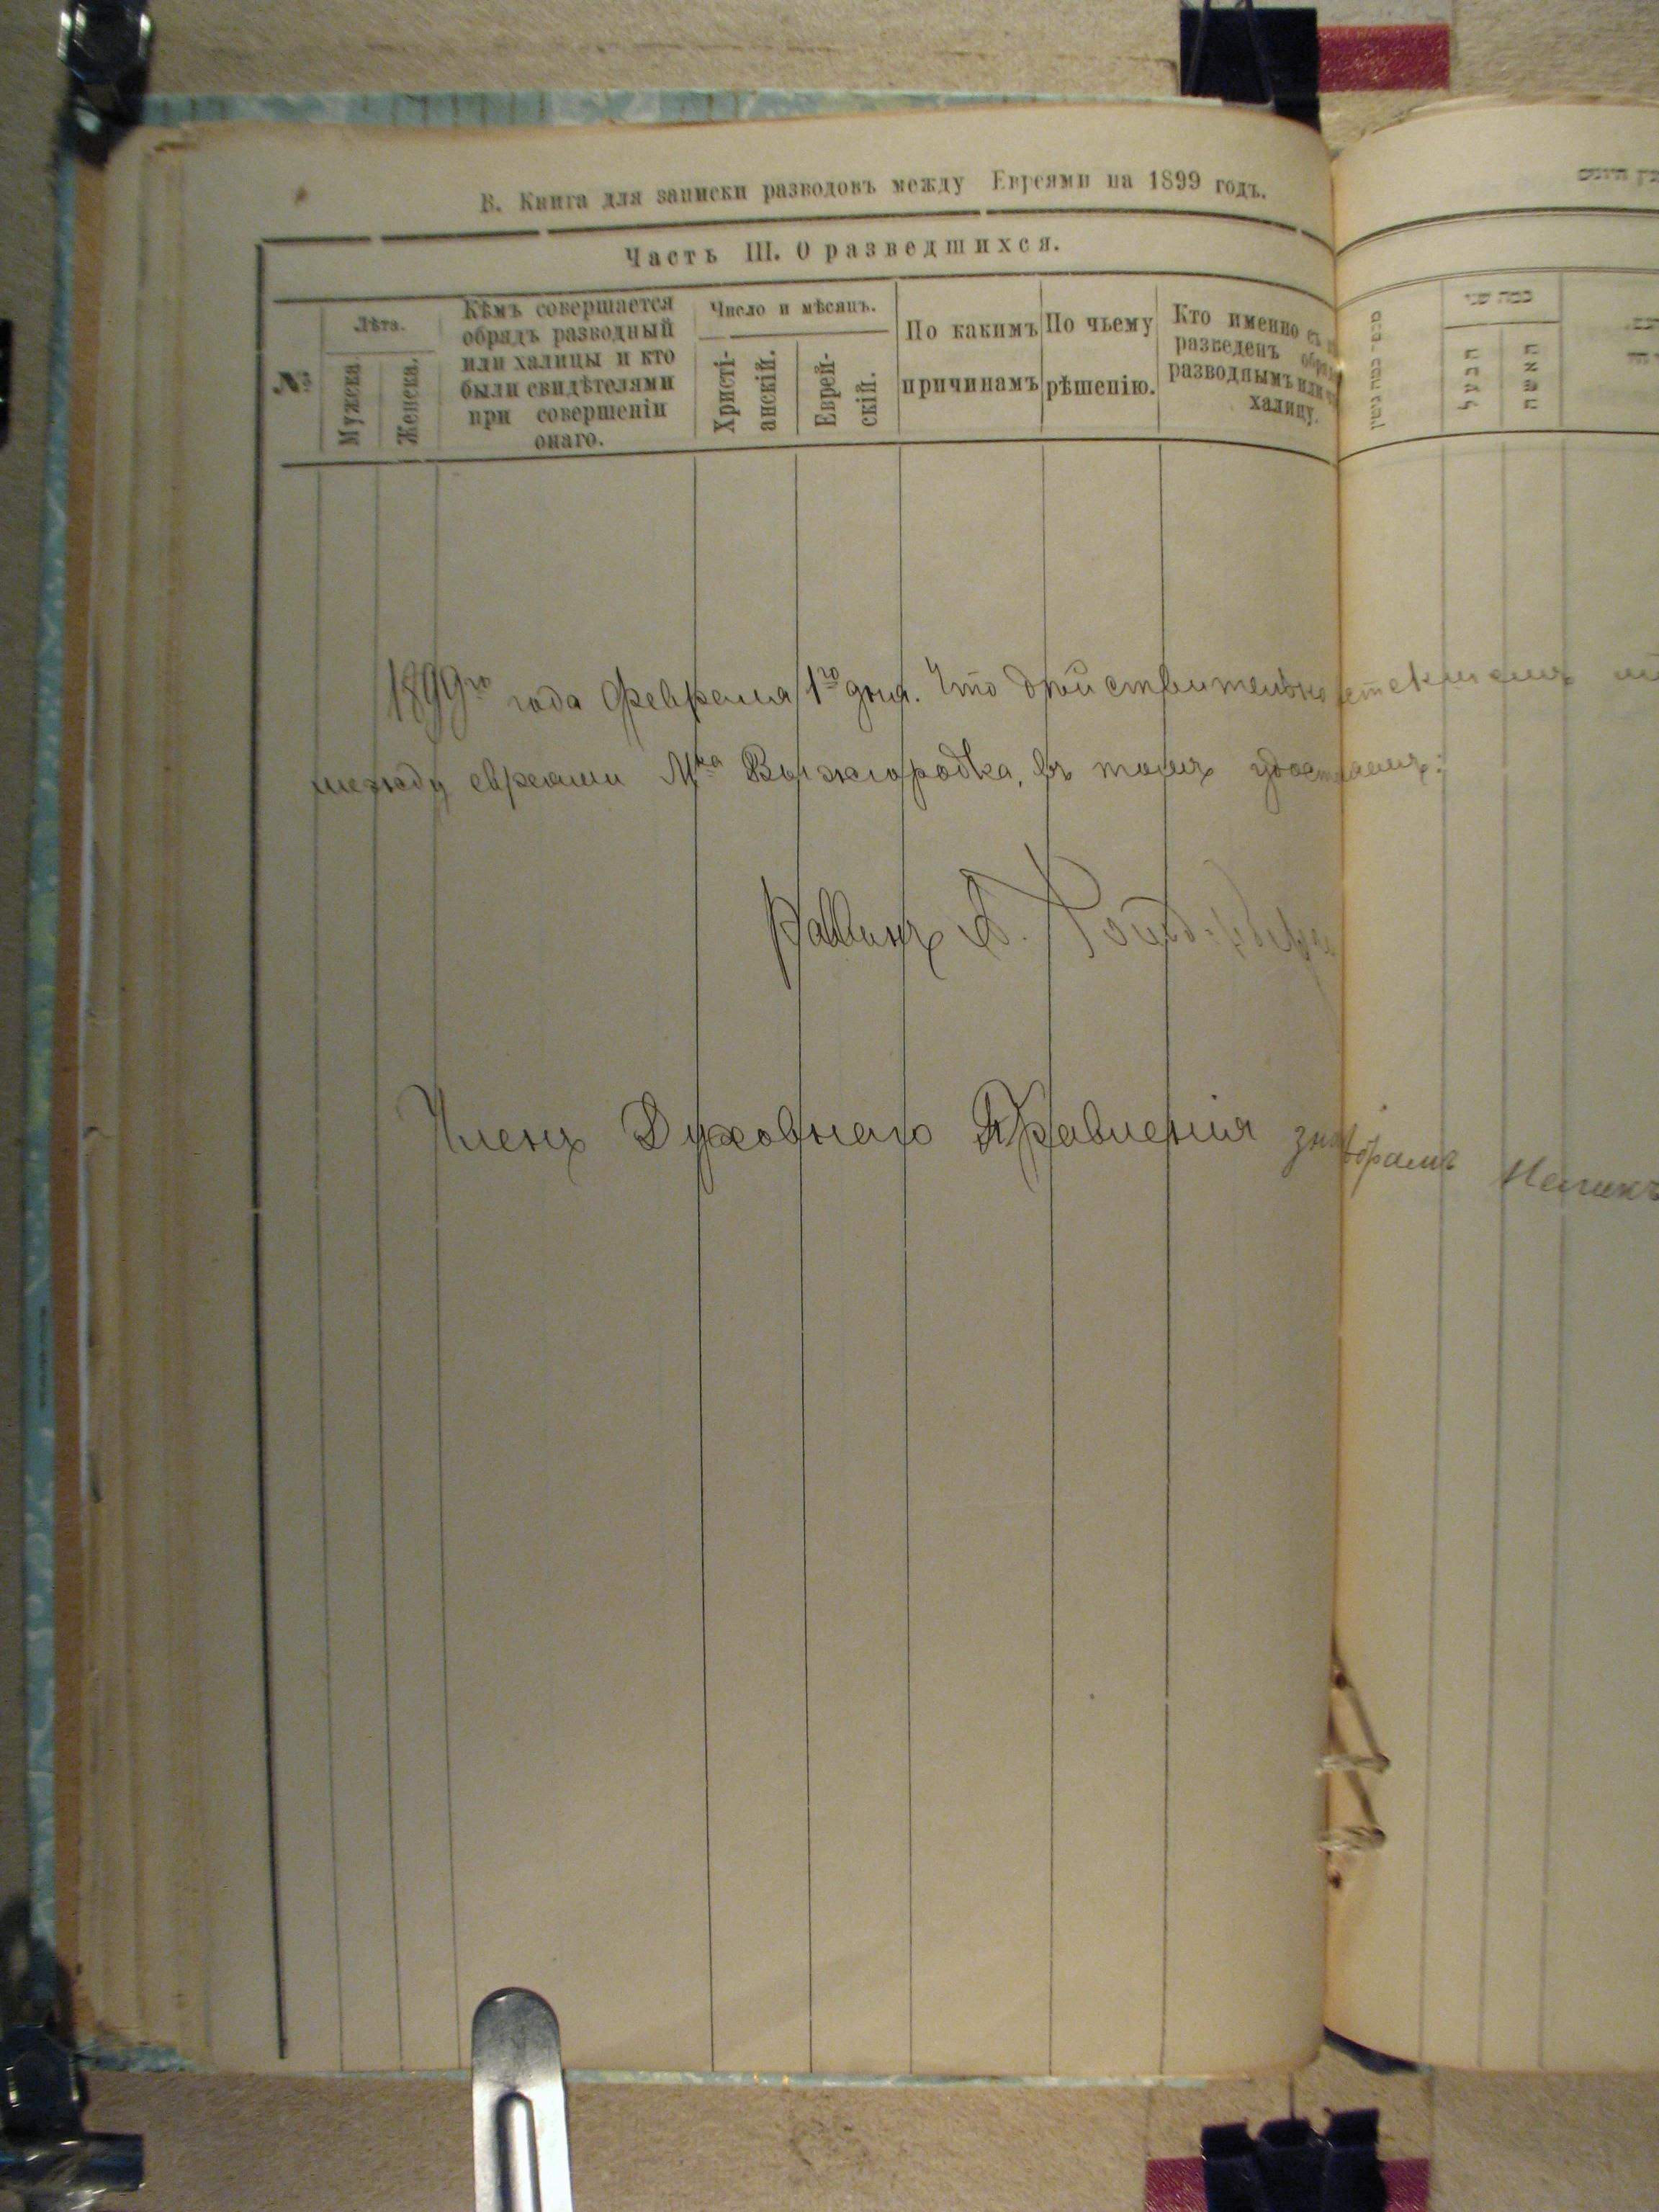 В. Книга для записки разводовъ между Евреями на 1899 годъ.
Часть III. О разведшихся.
№
Лѣта.
Мужеска
Женска.
Кѣмъ совершается
обрядъ разводный
или халицы и кто
были свидѣтелями
при совершеніи
онаго.
Число и мѣсяцъ.
Христі-
анскій.
Еврей-
скій.
По какимъ
причинамъ
По чьему
рѣшенію.
Кто именно съ
разведенъ
разводнымъ или
халицу.
כמה שני
הבעל
האשה
1899го года Февраля 1го дня. Что дѣйствительно
между евреями Мка Выжгородка, въ томъ
Раввинъ А.
Членъ Духовнаго Правленія